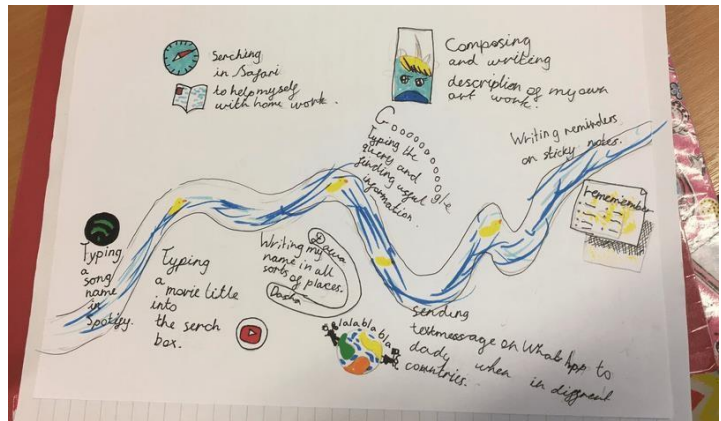 Serching
in Safari
to help myself
with home work.
Composing
and writing
description of my own
art work.
Gooooooooogle
Typing the
query and
finding useful
information.
Writing reminders
on sticky notes.
rememember
Typing
a
song
name
in
Spotify.
Typing
a movie title
into
the serch
box.
Writing my
name in all
sorts of places.
Dasha
lalablabla
sending
textmessage on WhatsApp to
dady when in different
countries.